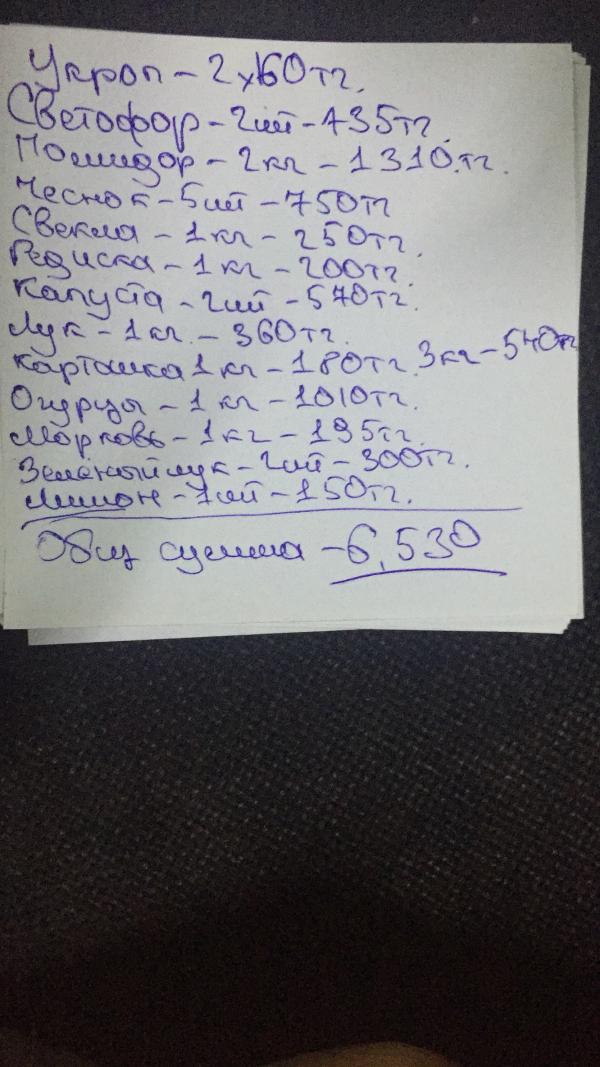 Укроп - 2x60тг.
Светофор - 2шт - 435тг.
Помидор - 2кг - 1310.тг.
Чеснок - 5шт - 750тг
Свекла - 1кг - 250тг.
Редиска - 1кг - 200тг.
Капуста - 2шт - 570тг.
Лук - 1кг. - 360тг.
Карташка 1кг - 180тг. 3кг - 540тг
Огурцы - 1кг - 1010тг.
Морковь - 1кг - 195тг.
Зелёный лук - 2шт - 300тг.
Лимон - 1шт - 150тг.
Общ сумма - 6,530